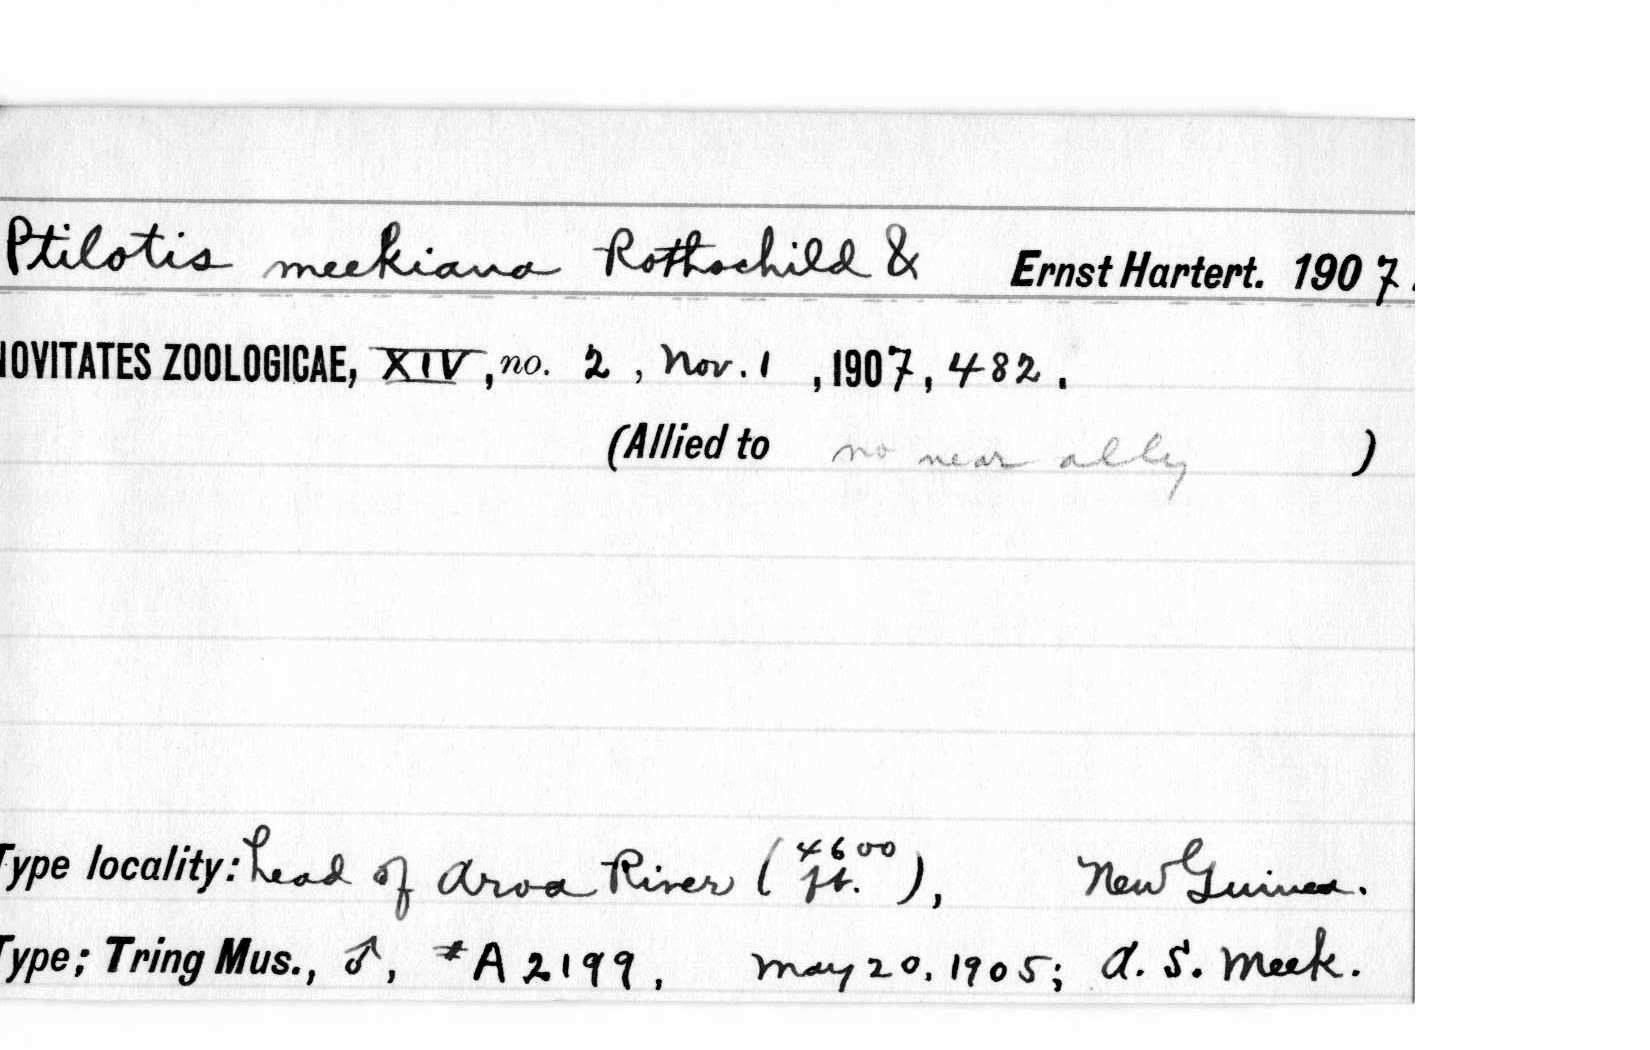 Ptilotis meekiana Rothschild & Ernst Hartert. 1907.
NOVITATES ZOOLOGICAE, XIV, no. 2, Nov. 1, 1907, 482.
(Allied to no near ally )
Type locality: head of Aroa River (4600 ft.), New Guinea.
Type; Tring Mus., ♂, #A2199, May 20, 1905; A. S. Meek.